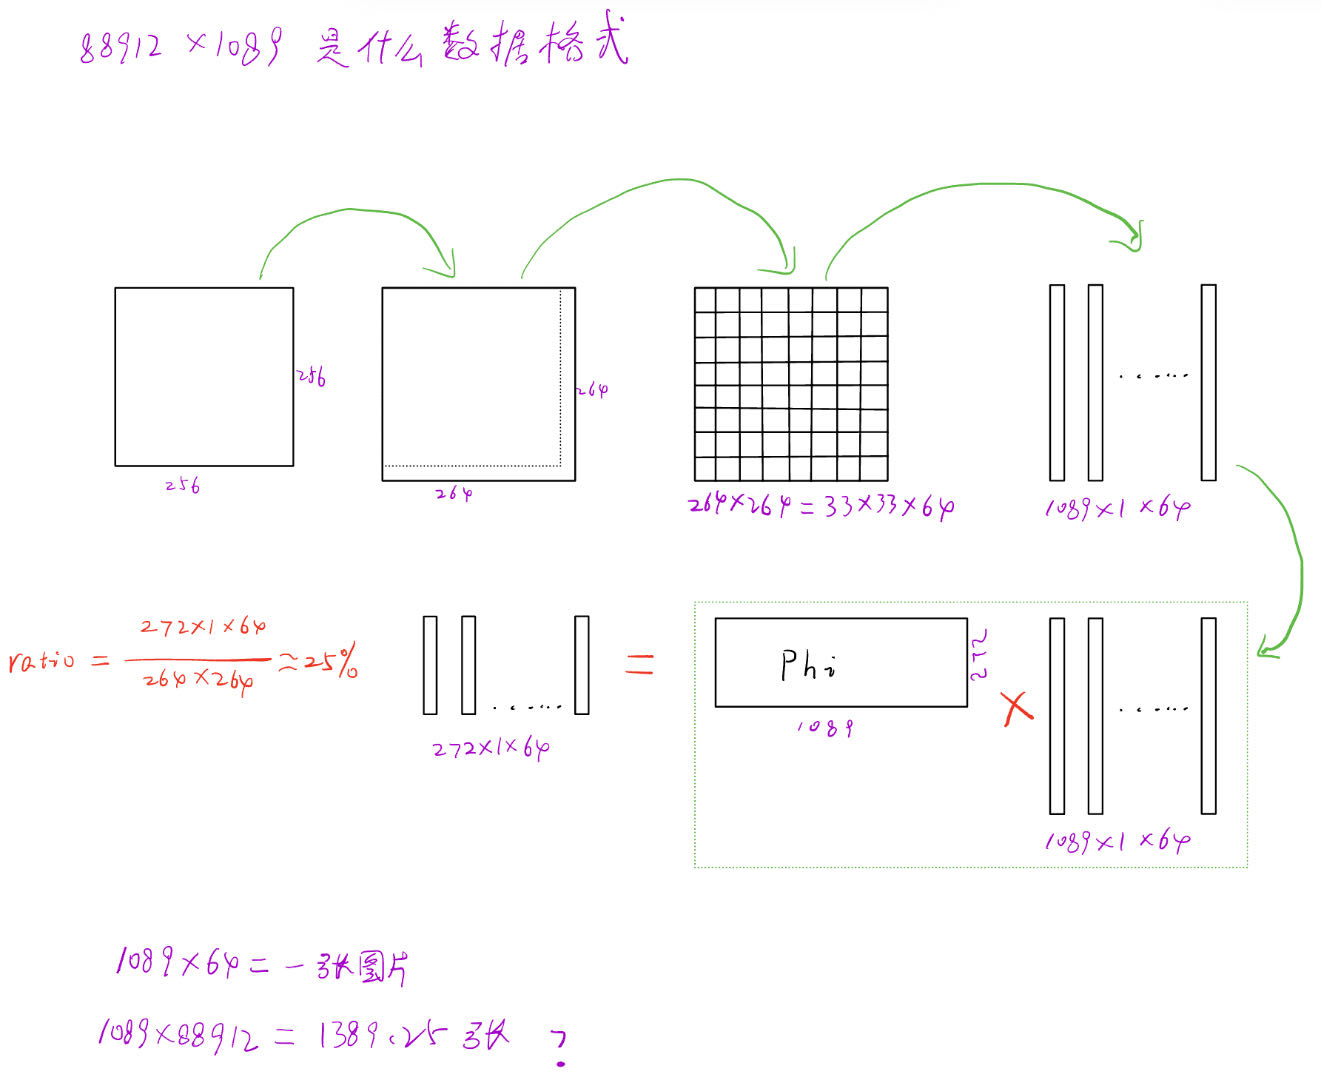 88912 ×1089 是什么数据格式
256
256
264
264
264×264 = 33×33×64
1089×1 ×64
ratio = 272×1×64 / 264×264 ≈ 25%
272×1×64
=
Phi
272
1089
×
1089×1 ×64
1089×64 = 一张图片
1089×88912 = 1389.25 张 ?